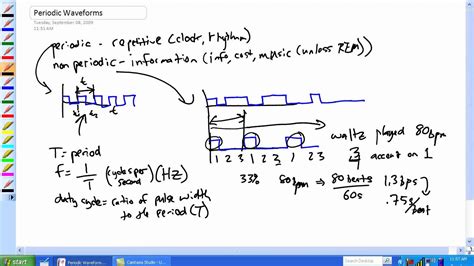 Periodic Waveforms
Tuesday, September 08, 2009
11:51 AM
periodic - repetitive (clock, rhythm)
non periodic - information (info, cost, music (unless REM))
t₁ t₂ t
T = period
f = 1/T (cycles per second) (Hz)
duty cycle = ratio of pulse width to the period (T)
1 2 3 1 2 3 1 2 3
waltz played 80bpm
3
accent on 1
33% 80bpm ⇒ 80 beats / 60s 1.3 bps
.75 s/beat
start
Periodic Waveforms...
Camtasia Studio - U...
Search Desktop
11:57 AM